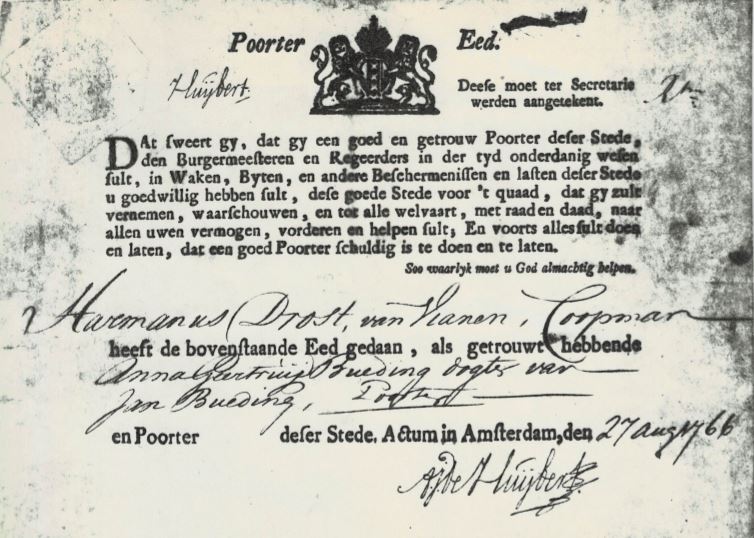 Poorter Eed.
Huijbert.
Deese moet ter Secretarie
werden aangetekent.
DAt sweert gy, dat gy een goed en getrouw Poorter deser Stede,
den Burgermeesteren en Regeerders in der tyd onderdanig wesen
sult, in Waken, Byten, en andere Beschermenissen en lasten deser Stede
u goedwillig hebben sult, dese goede Stede voor 't quaad, dat gy zult
vernemen, waarschouwen, en tot alle welvaart, met raad en daad, naar
allen uwen vermogen, vorderen en helpen sult; En voorts alles sult doen
en laten, dat een goed Poorter schuldig is te doen en te laten.
Soo waarlyk moet u God almachtig helpen.
Harmanus Drost, van Vianen, Coopman
heeft de bovenstaande Eed gedaan, als getrouwt hebbende
Anna Geertruij Bueding dogter van
Jan Bueding, Poorter
en Poorter deser Stede. Actum in Amsterdam, den 27 aug 1766
AJ de Huijbert